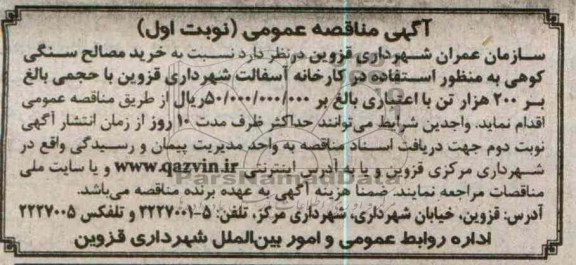 آگهی مناقصه عمومی (نوبت اول)
سازمان عمران شهرداری قزوین درنظر دارد نسبت به خرید مصالح سنگی
کوهی به منظور استفاده در کارخانه آسفالت شهرداری قزوین با حجمی بالغ
بر ۲۰۰ هزار تن با اعتباری بالغ بر ۵۰/۰۰۰/۰۰۰/۰۰۰ریال از طریق مناقصه عمومی
اقدام نماید. واجدین شرایط می‌توانند حداکثر ظرف مدت ۱۰ روز از زمان انتشار آگهی
نوبت دوم جهت دریافت اسناد مناقصه به واحد مدیریت پیمان و رسیدگی واقع در
شهرداری مرکزی قزوین و یا به آدرس اینترنتی www.qazvin.ir و یا سایت ملی
مناقصات مراجعه نمایند. ضمناً هزینه آگهی به عهده برنده مناقصه می‌باشد.
آدرس: قزوین، خیابان شهرداری، شهرداری مرکز، تلفن: ۵-۲۲۲۷۰۰۱ و تلفکس ۲۲۲۷۰۰۵
اداره روابط عمومی و امور بین‌الملل شهرداری قزوین